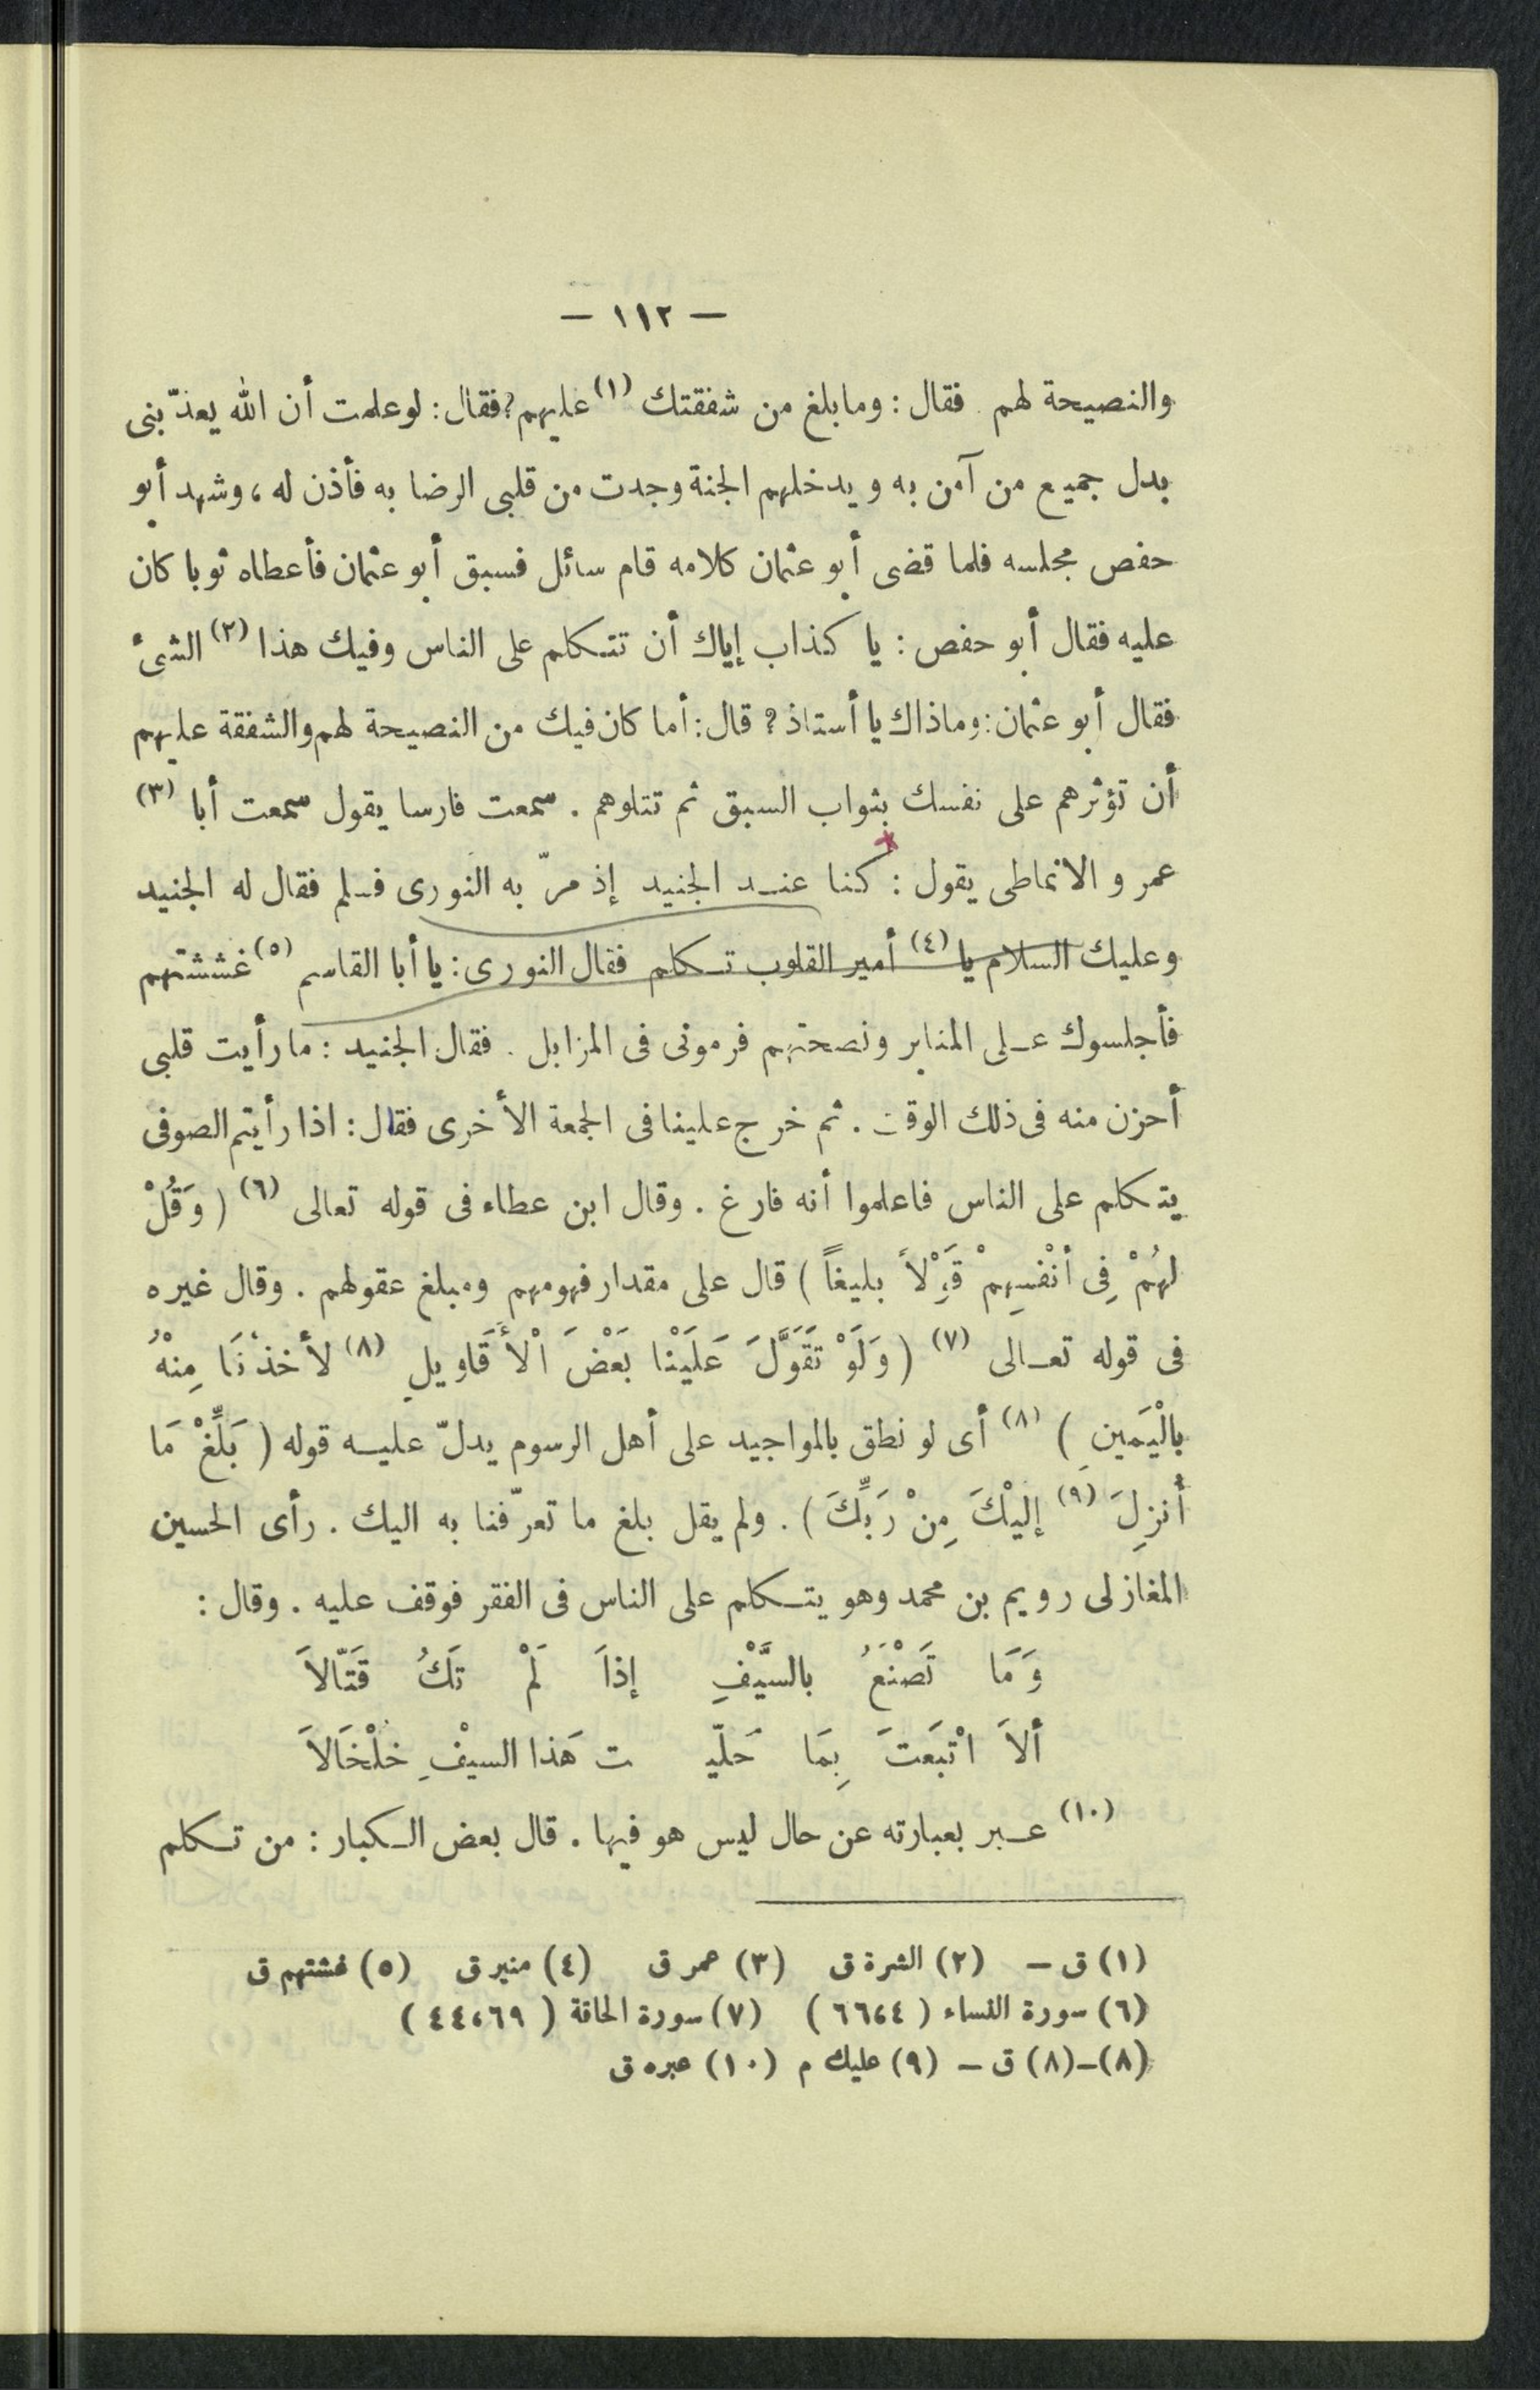 — ١١٢ —
والنصيحة لهم . فقال : وما بلغ من شفقتك (١) عليهم؟ فقال : لوعلمت أن الله يعذّبنى
بدل جميع من آمن به ويدخلهم الجنة وجدت من قلبى الرضا به فأذن له ، وشهد أبو
حفص مجلسه فلما قضى أبو عثمان كلامه قام سائل فسبق أبو عثمان فأعطاه ثوبا كان
عليه فقال أبو حفص : يا كذاب إياك أن تتكلم على الناس وفيك هذا (٢) الشئ
فقال أبو عثمان : وماذاك يا أستاذ ؟ قال : أما كان فيك من النصيحة لهم والشفقة عليهم
أن تؤثرهم على نفسك بثواب السبق ثم تتلوهم . سمعت فارسا يقول سمعت أبا (٣)
عمرو الانماطى يقول : كنا عند الجنيد إذ مرّ به النورى فسلم فقال له الجنيد
وعليك السلام يا (٤) أمير القلوب تكلم فقال النورى : يا أبا القاسم (٥) غششتهم
فأجلسوك على المنابر ونصحتهم فرمونى فى المزابل . فقال الجنيد : ما رأيت قلبى
أحزن منه فى ذلك الوقت . ثم خرج علينا فى الجمعة الأخرى فقال : اذا رأيتم الصوفى
يتكلم على الناس فاعلموا أنه فارغ . وقال ابن عطاء فى قوله تعالى (٦) ( وَقُلْ
لهُمْ فِى أنْفسِهِمْ قَوْلاً بليغاً ) قال على مقدار فهومهم ومبلغ عقولهم . وقال غيره
فى قوله تعالى (٧) ( وَلَوْ تَقَوَّلَ عَلَيْنا بَعْضَ اْلأَقَاويلِ (٨) لأخذْنَا مِنْهُ
بالْيَمينِ ) (٨) أى لو نطق بالمواجيد على أهل الرسوم يدلّ عليه قوله ( بَلِّغْ مَا
أُنزِلَ (٩) إليْكَ مِنْ رَبِّكَ ) . ولم يقل بلغ ما تعرّفنا به اليك . رأى الحسين
المغازلى رويم بن محمد وهو يتكلم على الناس فى الفقر فوقف عليه . وقال :
وَمَا تَصْنَعُ بالسَّيْفِ إذاَ لَمْ تَكُ قَتّالاَ
ألاَ ابْتَعتَ بِمَا حَلّيـ ـت هَذا السيْفِ خلْخَالاَ
(١٠) عبر بعبارته عن حال ليس هو فيها . قال بعض الكبار : من تكلم
(١) ق — (٢) الشرة ق (٣) عمر ق (٤) منير ق (٥) غشتهم ق
(٦) سورة النساء ( ٦٦،٤ ) (٧) سورة الحاقة ( ٤٤،٦٩ )
(٨)—(٨) ق — (٩) عليك م (١٠) عبره ق